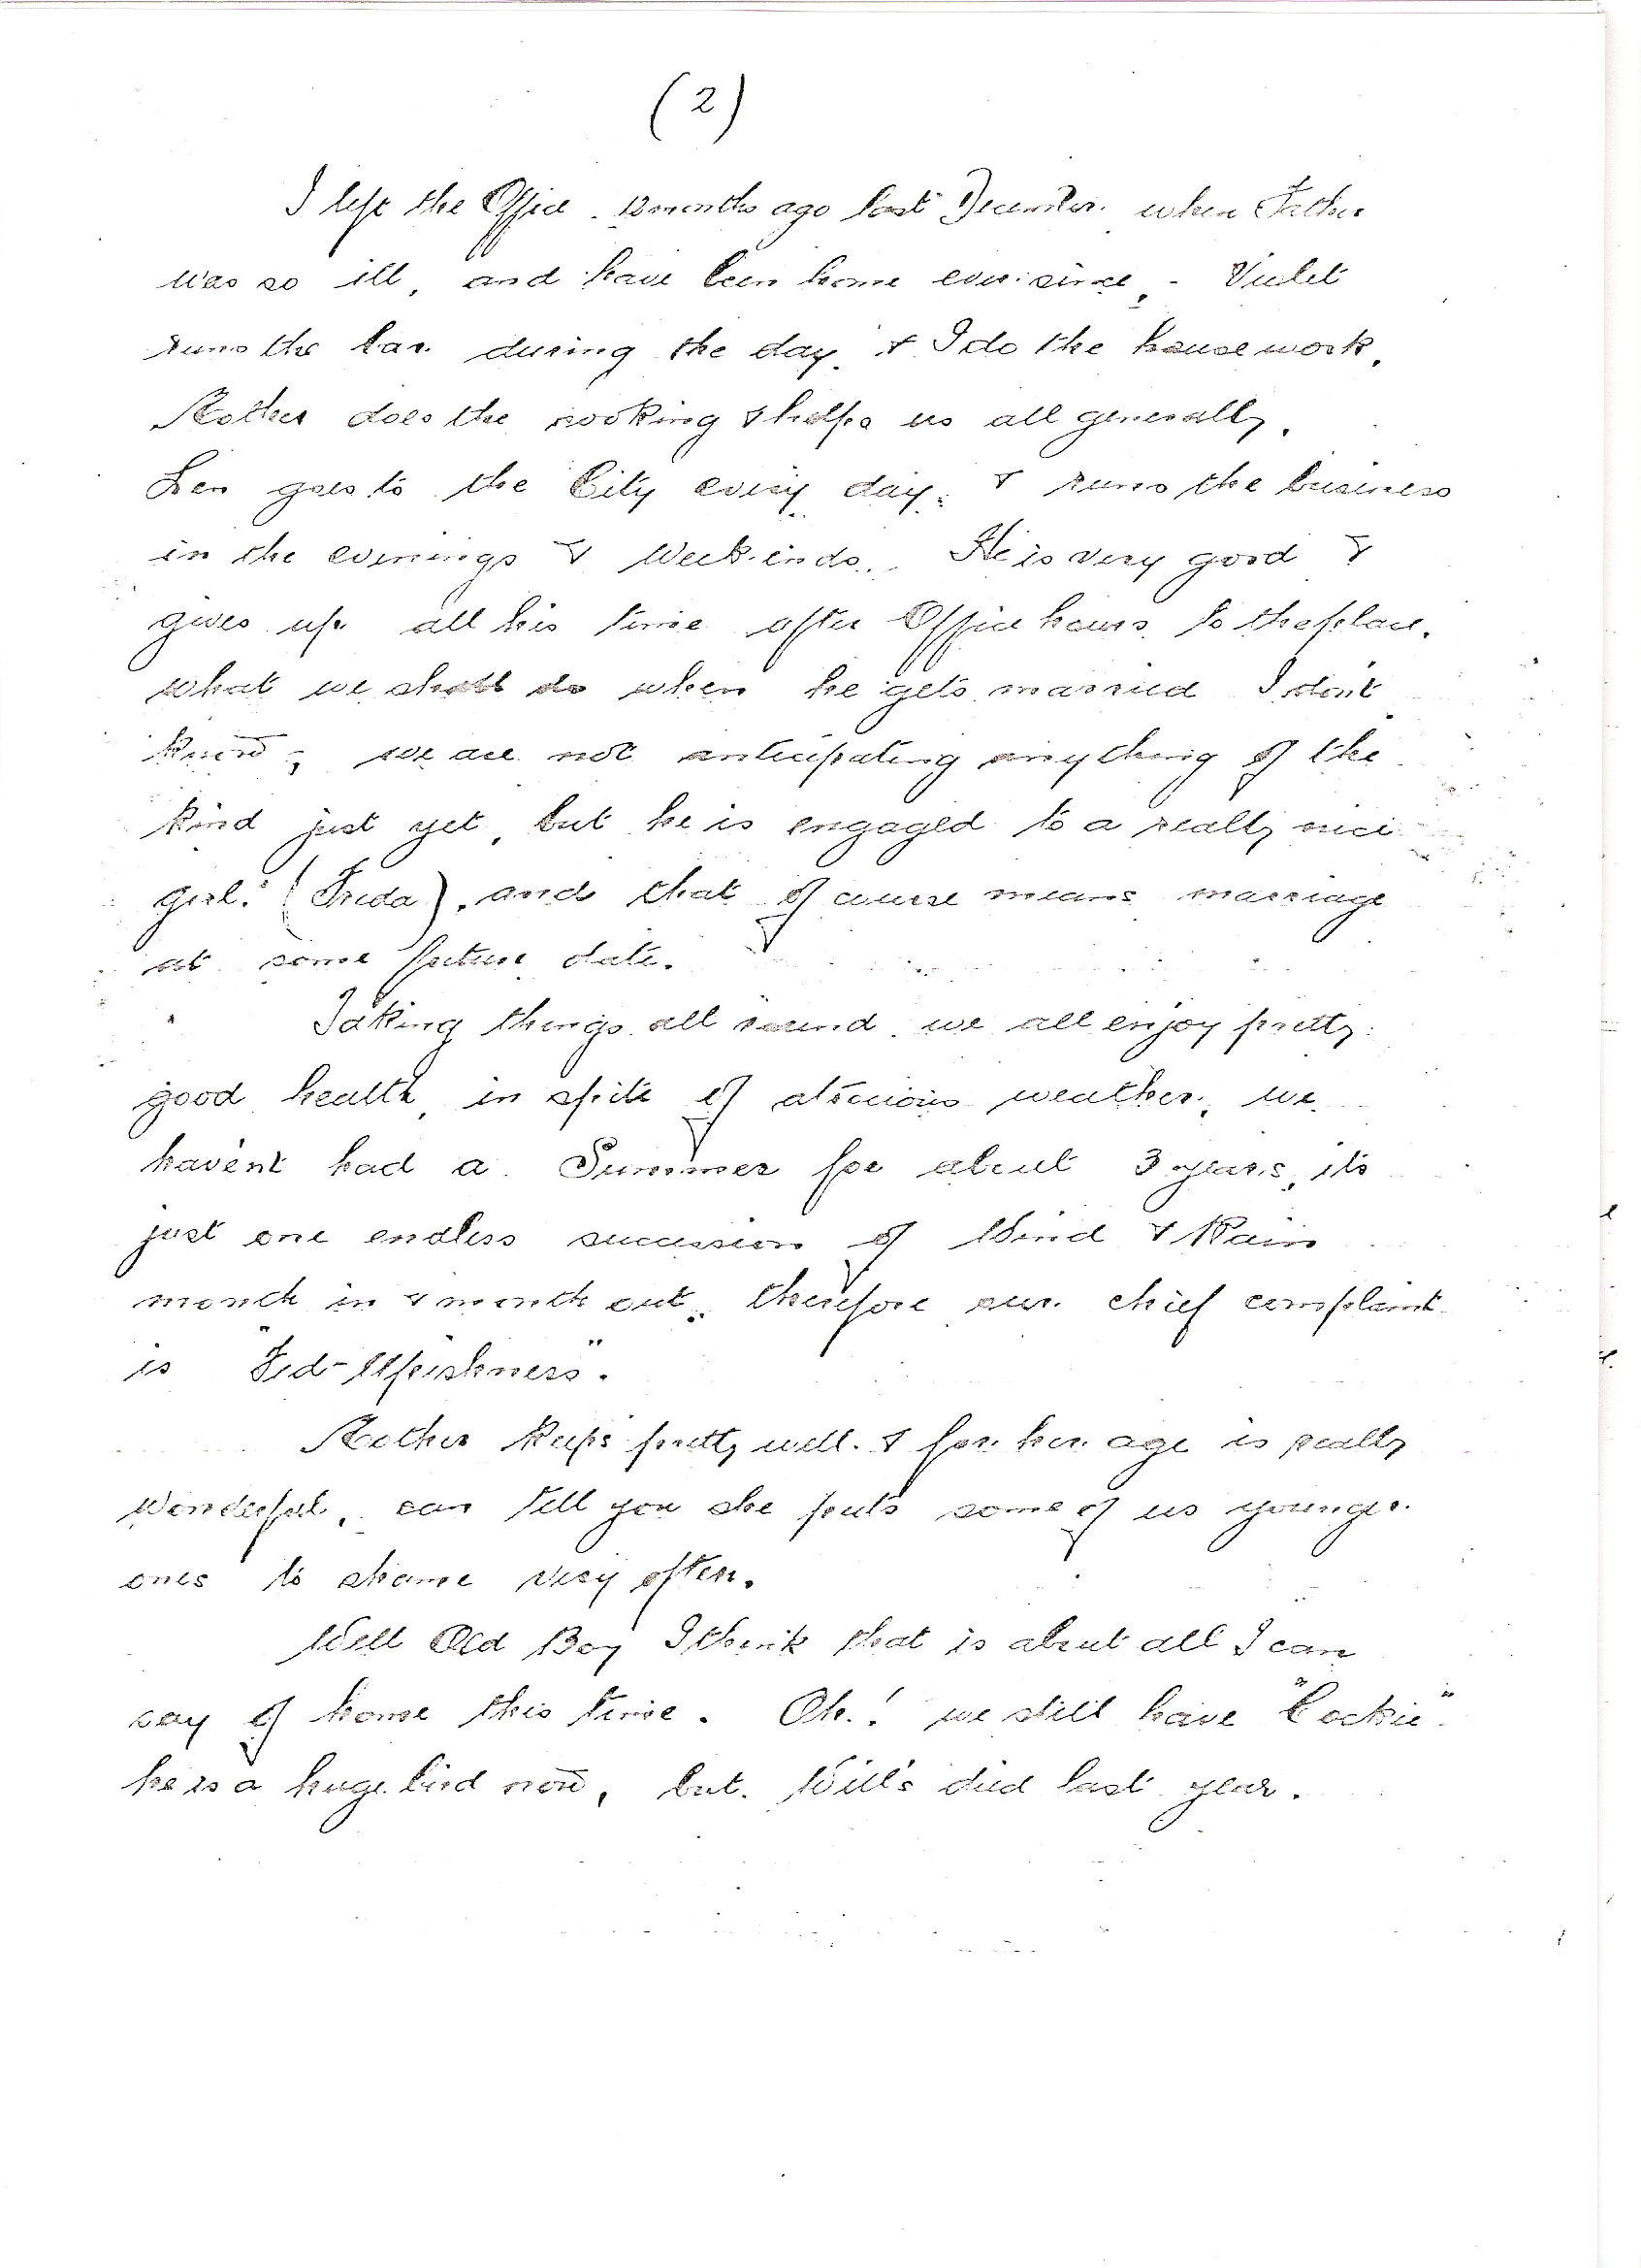 (2)
I left the Office 12 months ago last December when Father
was so ill, and have been home ever since, - Violet
runs the bar during the day & I do the house work,
Mother does the cooking & helps us all generally,
Len goes to the City every day, & runs the business
in the evenings & Week-ends. He is very good &
gives up all his time after Office hours to the place,
what we shall do when he gets married I don't
know, we are not anticipating anything of the
kind just yet, but he is engaged to a really nice
girl. (Freda), and that of course means marriage
at some future date.
Taking things all round we all enjoy pretty
good health, in spite of atrocious weather, we
haven't had a Summer for about 3 years, its
just one endless succession of Wind & Rain
month in & month out, therefore our chief complaint
is "Fed-Upishness".
Mother keeps pretty well. & for her age is really
wonderful, can tell you she puts some of us younger
ones to shame very often.
Well Old Boy I think that is about all I can
say of home this time. Oh! we still have "Cockie"
he is a huge bird now, but Will's died last year.